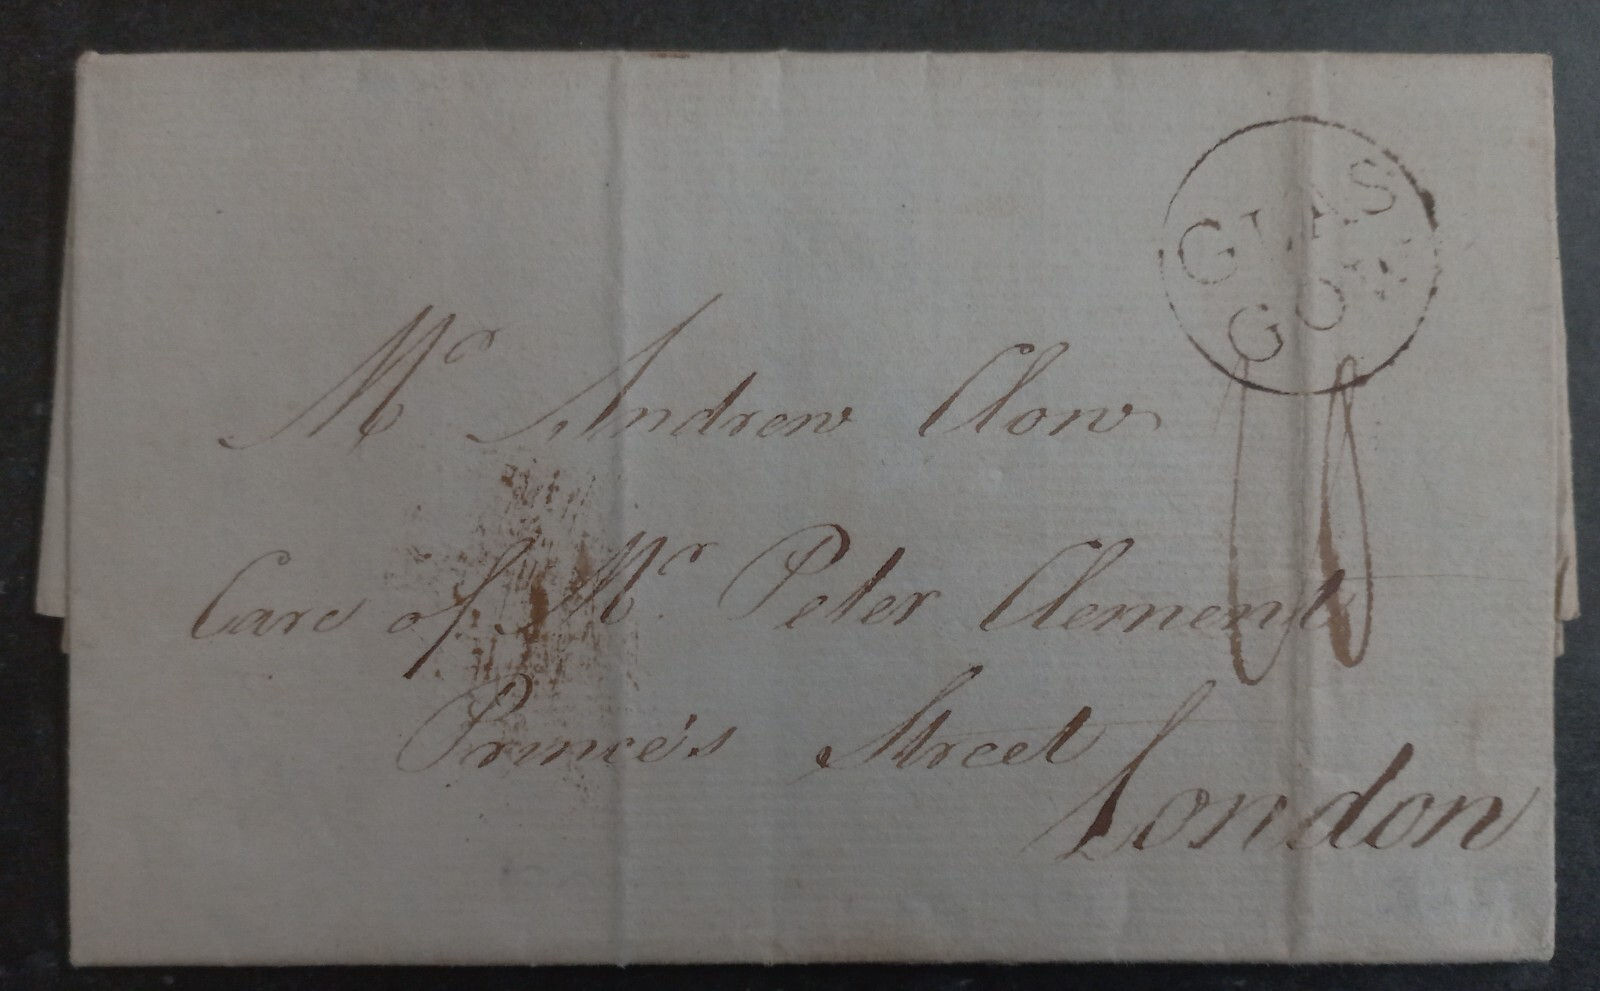 GLAS
GOW
Mr Andrew Clow
Care of Mr Peter Clement
Prince's Street
London